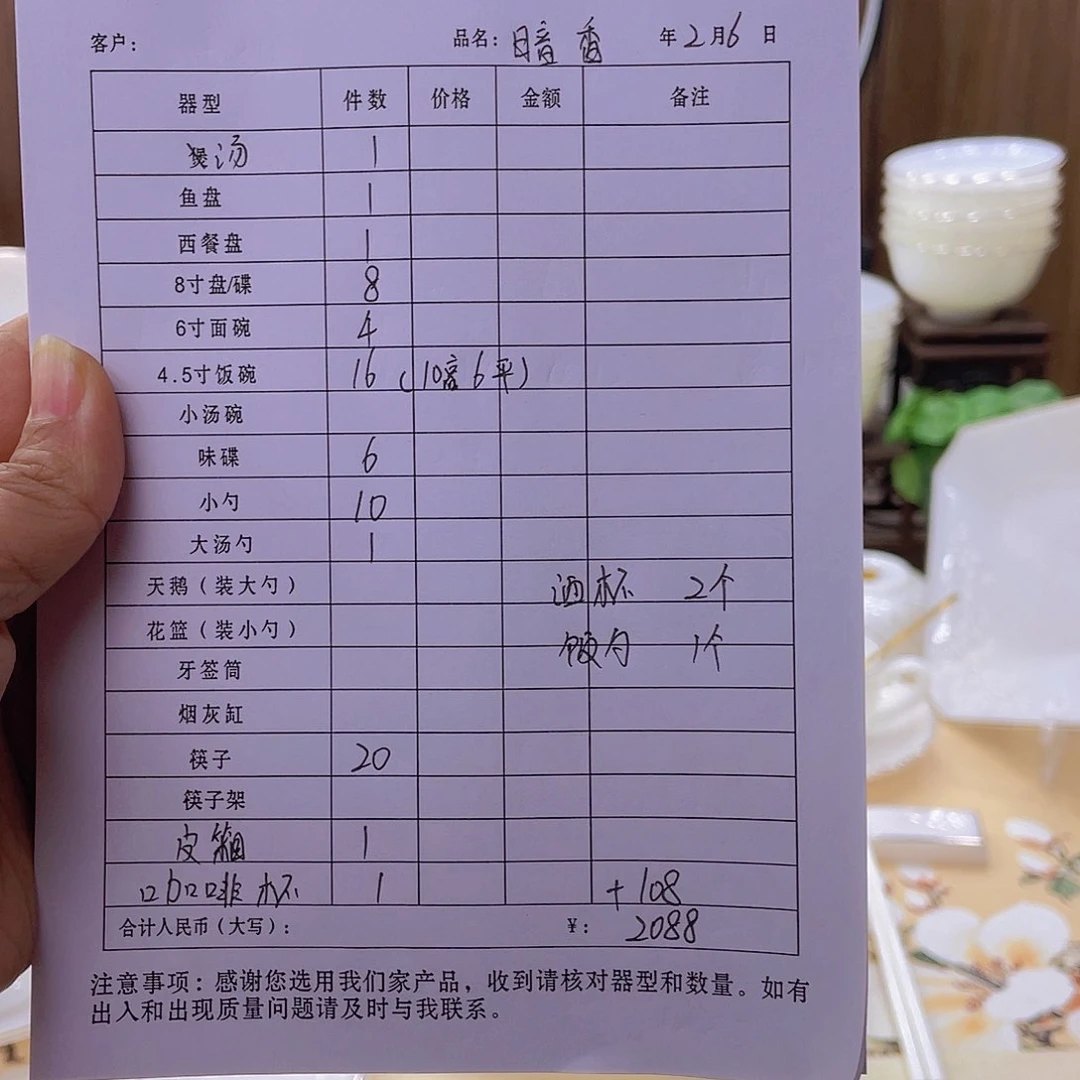 客户： 品名：暗香 年2月6日
器型 件数 价格 金额 备注
煲汤 1
鱼盘 1
西餐盘 1
8寸盘/碟 8
6寸面碗 4
4.5寸饭碗 16（10高6平）
小汤碗
味碟 6
小勺 10
大汤勺 1
天鹅（装大勺） 酒杯 2个
花篮（装小勺） 饭勺 1个
牙签筒
烟灰缸
筷子 20
筷子架
皮箱 1
咖啡杯 1 +108
合计人民币（大写）： ¥： 2088
注意事项：感谢您选用我们家产品，收到请核对器型和数量。如有
出入和出现质量问题请及时与我联系。